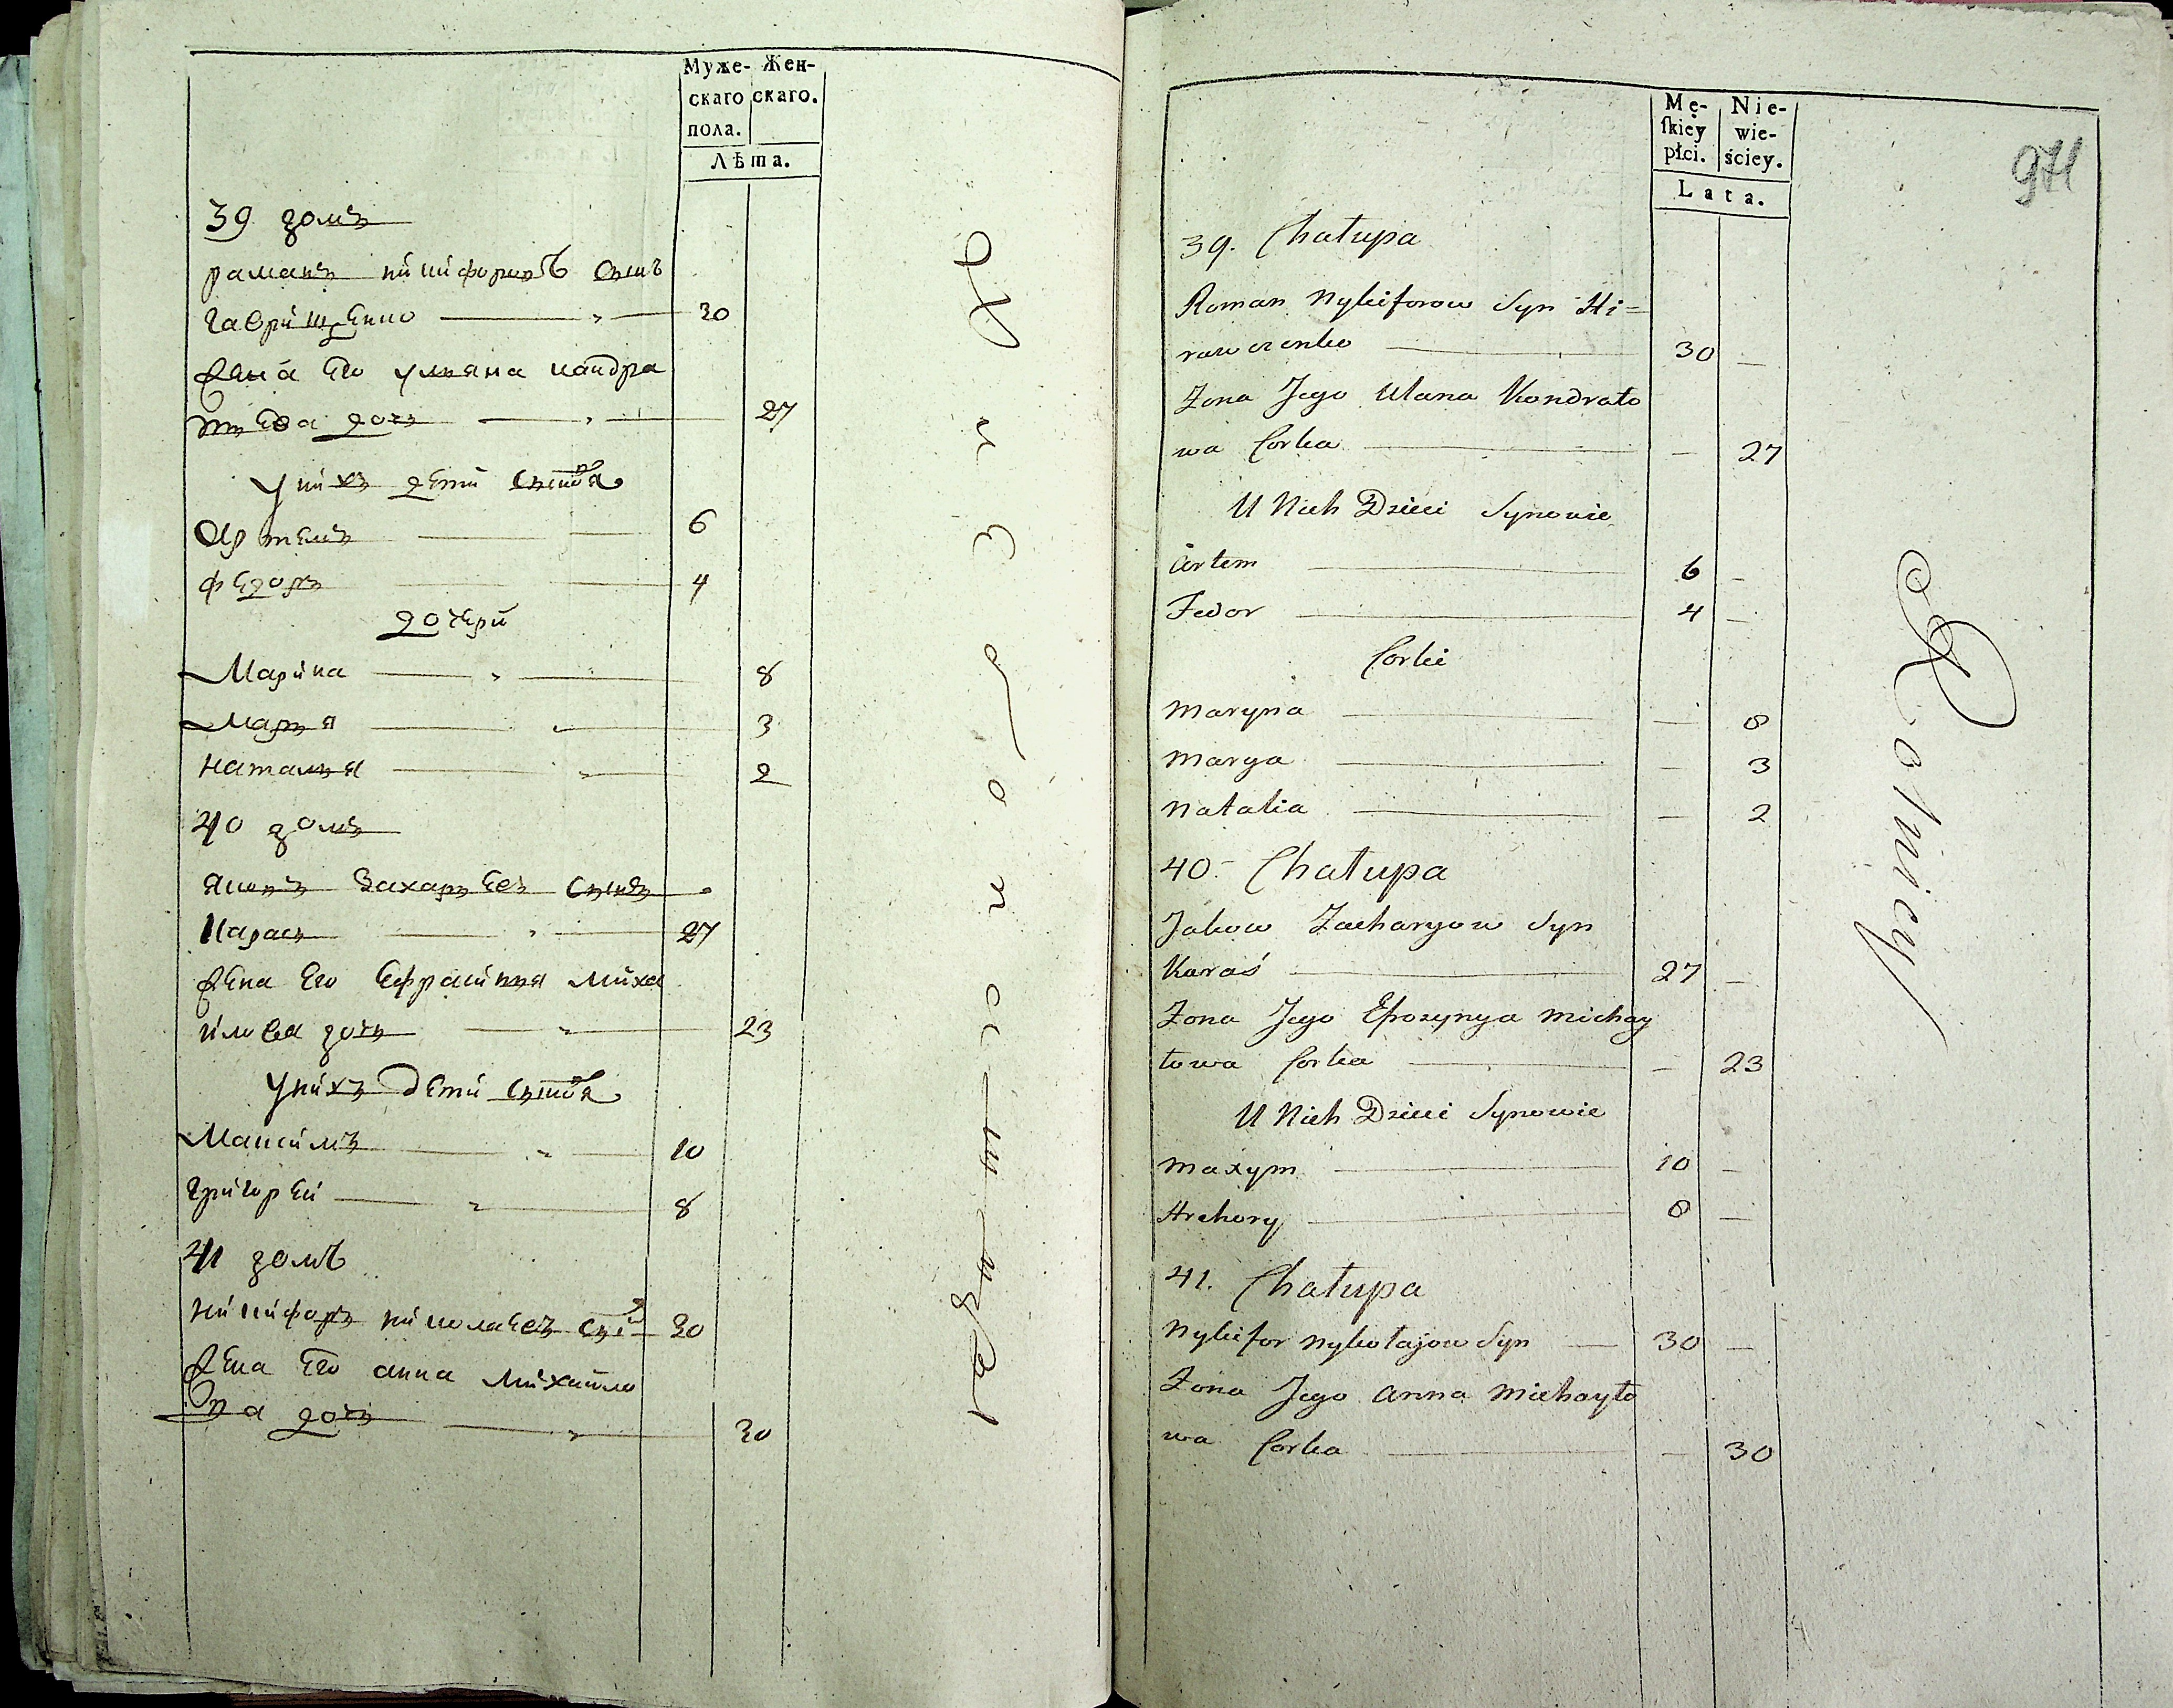 Муже-
скаго
пола.
Жен-
скаго.
Лѣта.
39 домъ
раманъ никифоровъ сынъ
30
жена его ульяна кандра
тьева дочь 27
у нихъ дети сыновья
Артемъ 6
федоръ 4
дочери
Марина 8
Марья 3
наталья 2
40 домъ
яковъ Захарьевъ сынъ
Карась 27
жена его Ефрасинья Миха
илова дочь 23
у нихъ дети сыновья
Максимъ 10
Григорей 8
41 домъ
никифоръ николаевъ сынъ 30
жена его анна Михайло
ва дочь 30
Mę-
ſkiey
płci.
Nie-
wie-
ściey.
Lata.
39. Chałupa
Roman Nykiforow Syn Hi=
rawczenko 30 —
Zona Jego Ulana Kondrato
wa Corka — 27
U Nich Dzieci Synowie
Artem 6 —
Fedor 4 —
Corki
Maryna — 8
Marya — 3
Natalia — 2
40 – Chałupa
Jakow Zacharyow Syn
Karaś 27 —
Zona Jego Efrozynya Michay
łowa Corka — 23
U Nich Dzieci Synowie
Maxym 10 —
Hrehory 8 —
41. Chałupa
Nykifor Nykołajow Syn 30 —
Zona Jego Anna Michayło
wa Corka — 30
Rolnicy